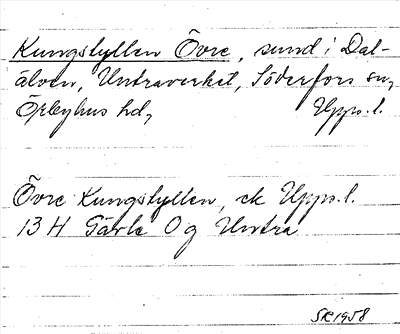 Kungstyllen Övre, sund i Dal-
älven, Untraverket, Söderfors sn,
Örbyhus hd, Upps. l.
Övre Kungstyllen, ek Upps. l.
13 H Gävle O g Untra
SR 1958